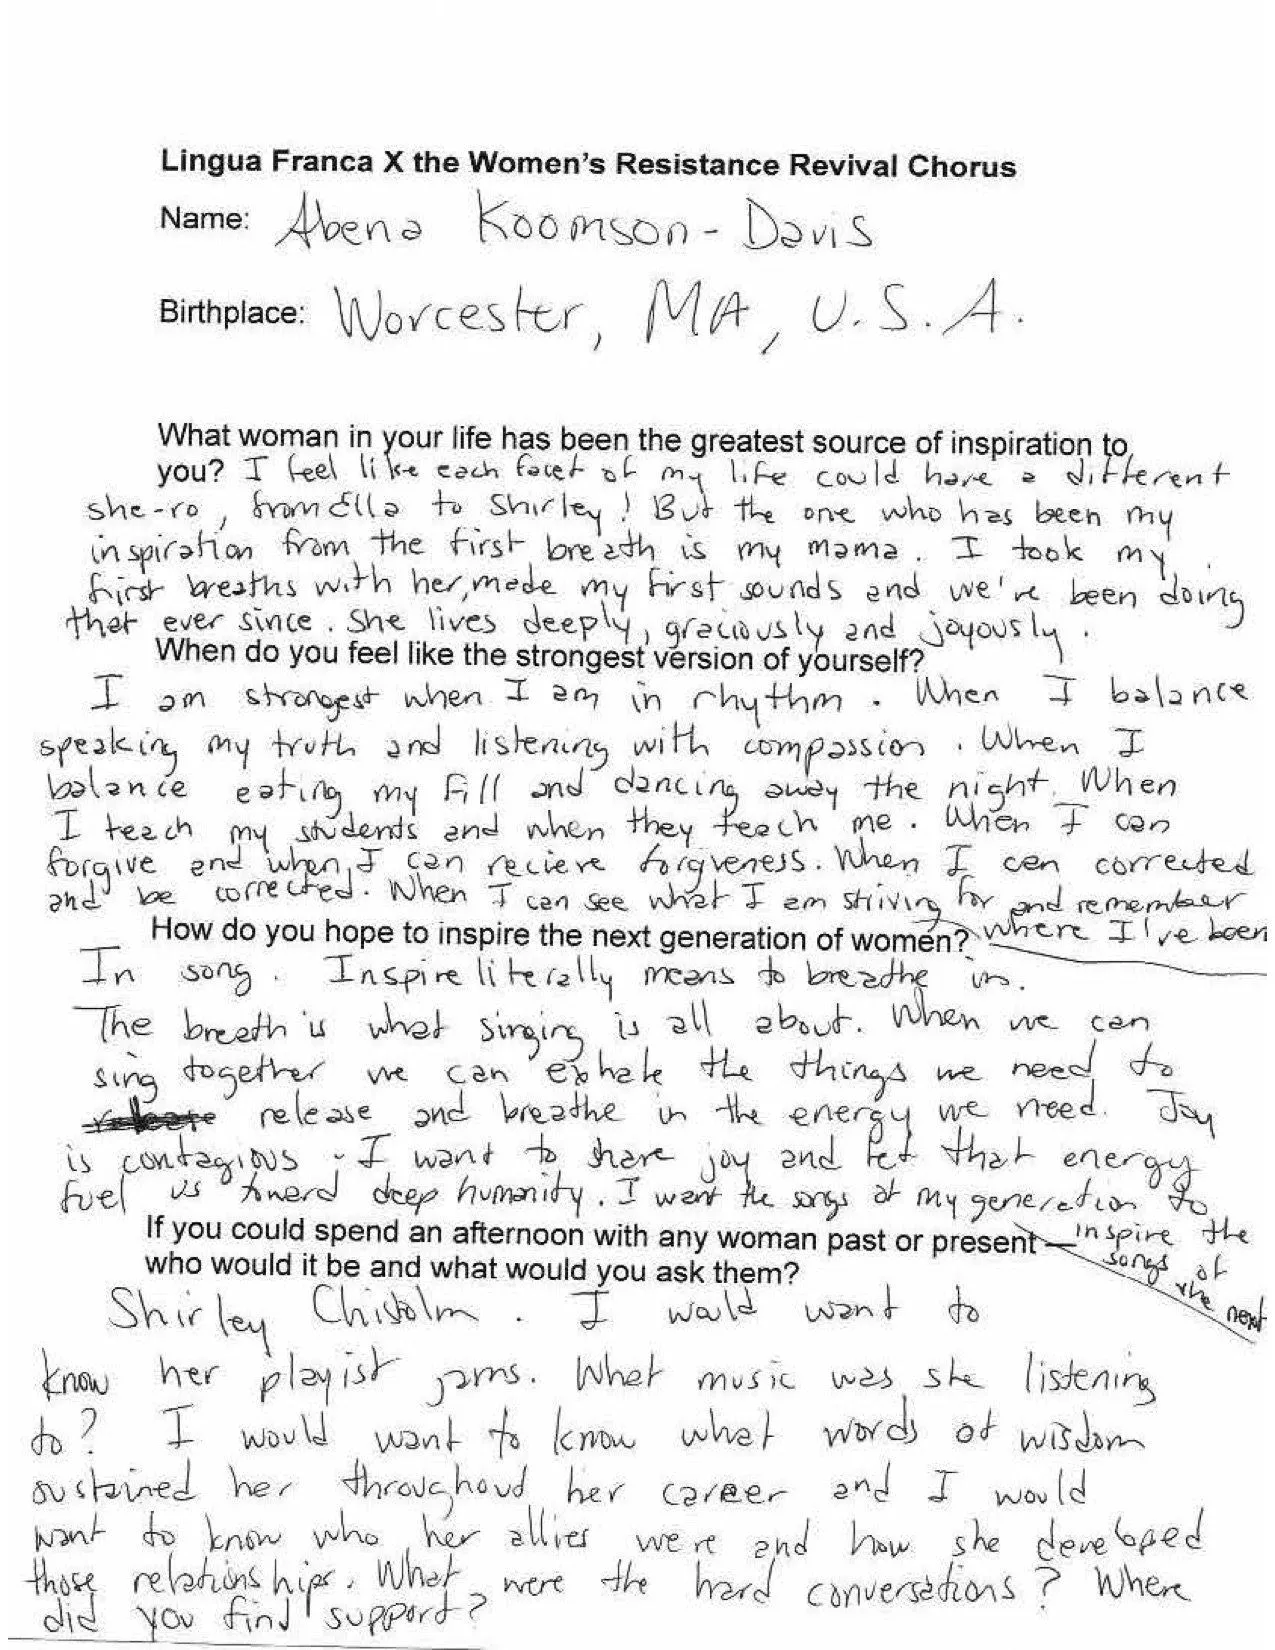 Lingua Franca X the Women's Resistance Revival Chorus
Name: Abena Koomson-Davis
Birthplace: Worcester, MA, U.S.A.
What woman in your life has been the greatest source of inspiration to
you? I feel like each facet of my life could have a different
she-ro, from Ella to Shirley! But the one who has been my
inspiration from the first breath is my mama. I took my
first breaths with her, made my first sounds and we're been doing
that ever since. She lives deeply, graciously and joyously.
When do you feel like the strongest version of yourself?
I am strongest when I am in rhythm. When I balance
speaking my truth and listening with compassion. When I
balance eating my fill and dancing away the night. When
I teach my students and when they teach me. When I can
forgive and when I can recieve forgiveness. When I can corrected
and be corrected. When I can see what I am striving for and remember
where I've been
How do you hope to inspire the next generation of women?
In song. Inspire literally means to breathe in.
The breath is what singing is all about. When we can
sing together we can exhale the things we need to
release and breathe in the energy we need. Joy
is contagious - I want to share joy and let that energy
fuel us toward deep humanity. I want the songs of my generation to
inspire the
songs of
the next
If you could spend an afternoon with any woman past or present
who would it be and what would you ask them?
Shirley Chisolm. I would want to
know her playist jams. What music was she listening
to? I would want to know what words of wisdom
sustained her throughoud her career and I would
want to know who her allies were and how she developed
those relationships. What were the hard conversations? Where
did you find support?